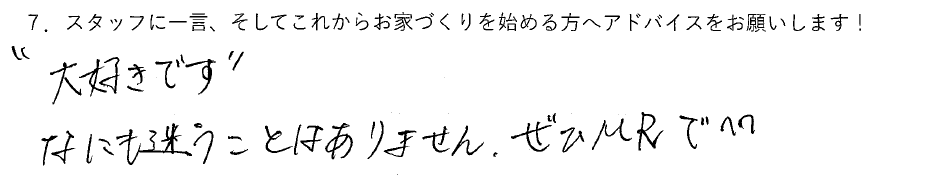 7. スタッフに一言、そしてこれからお家づくりを始める方へアドバイスをお願いします！
“大好きです”
なにも迷うことはありません。ぜひMRで^^